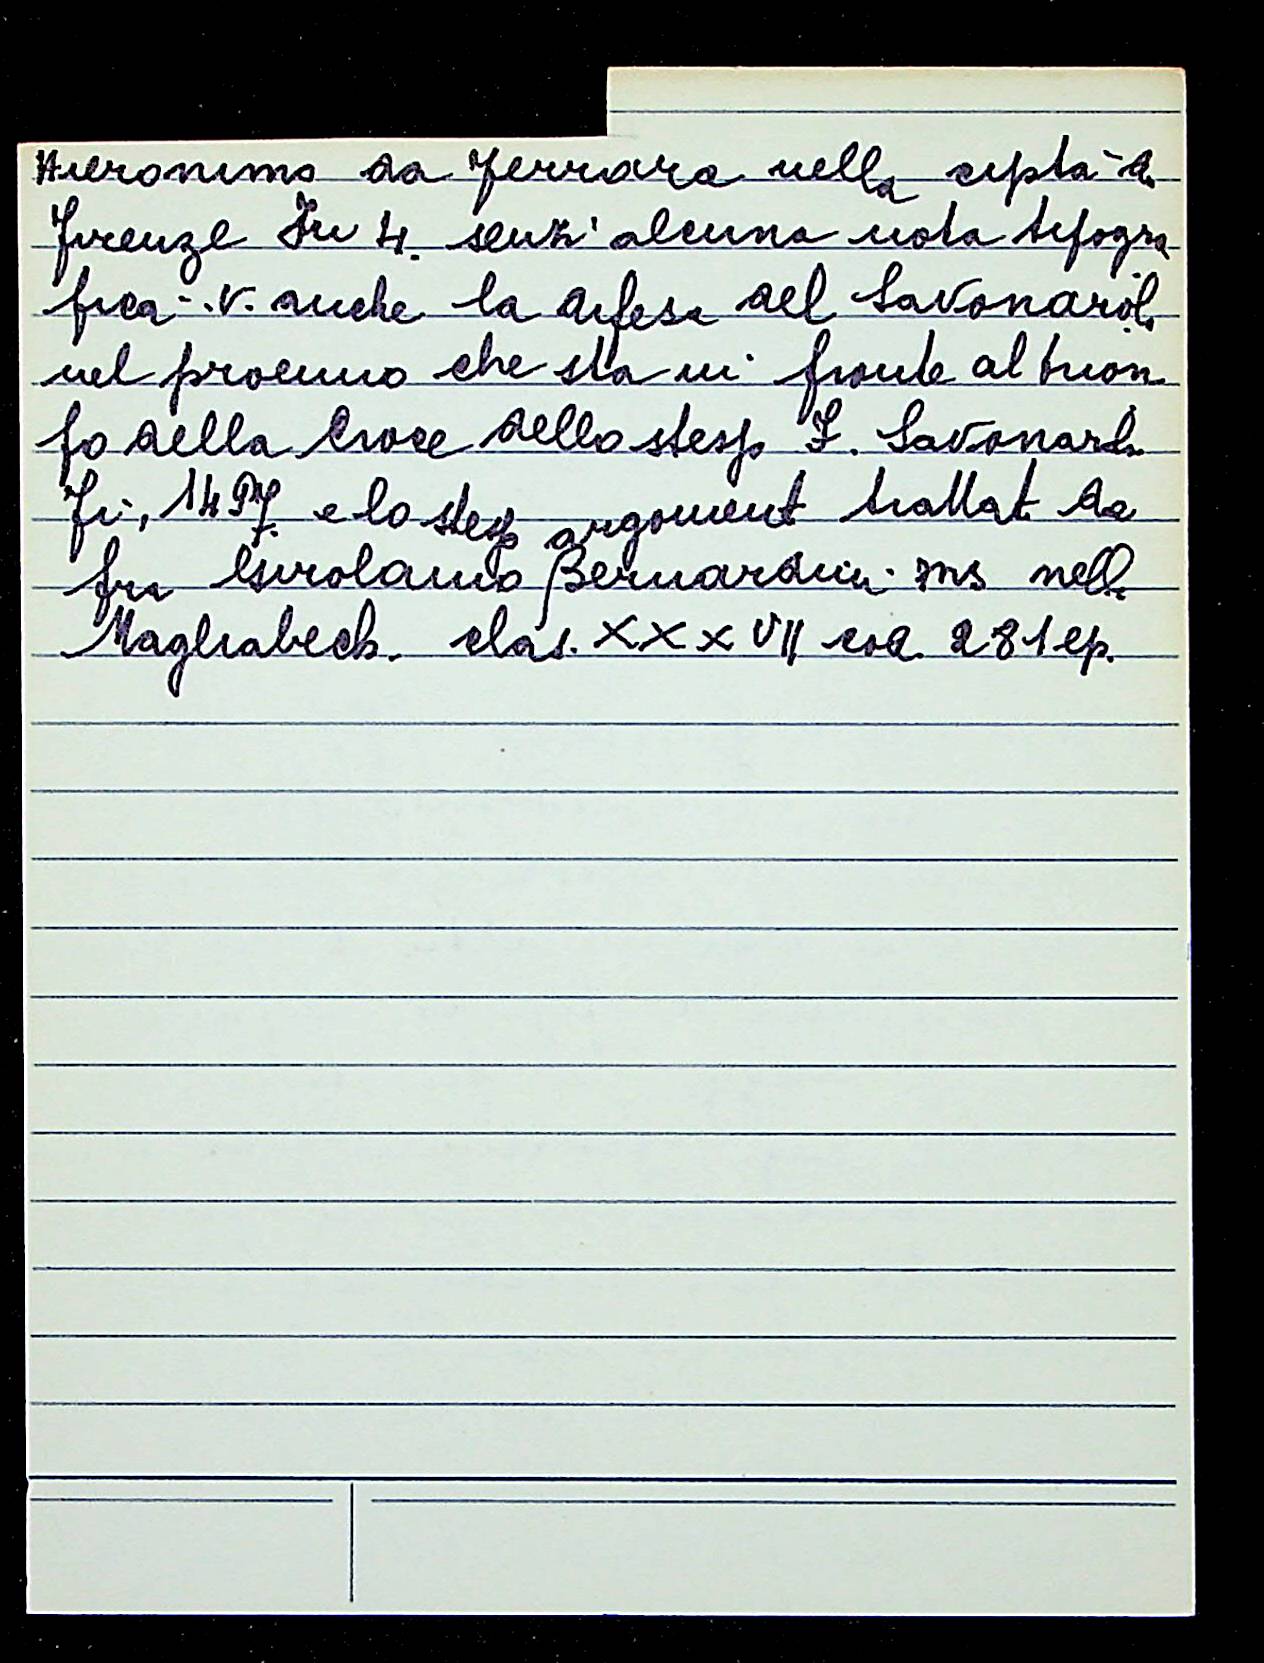 Hieronimo da Ferrara nella cipta di
Firenze In 4. senz' alcuna nota tipogra
fica -. V. anche la difesa del Savonarol.
nel proemio che sta in fronte al trion
fo della Croce dello stesso F. Savonarol.
Fi, 1497. e lo stesso argoment trattat da
fra Girolamo Bernardin. ms nell.
Magliabech. clas. XXXVII cod. 281 ep.